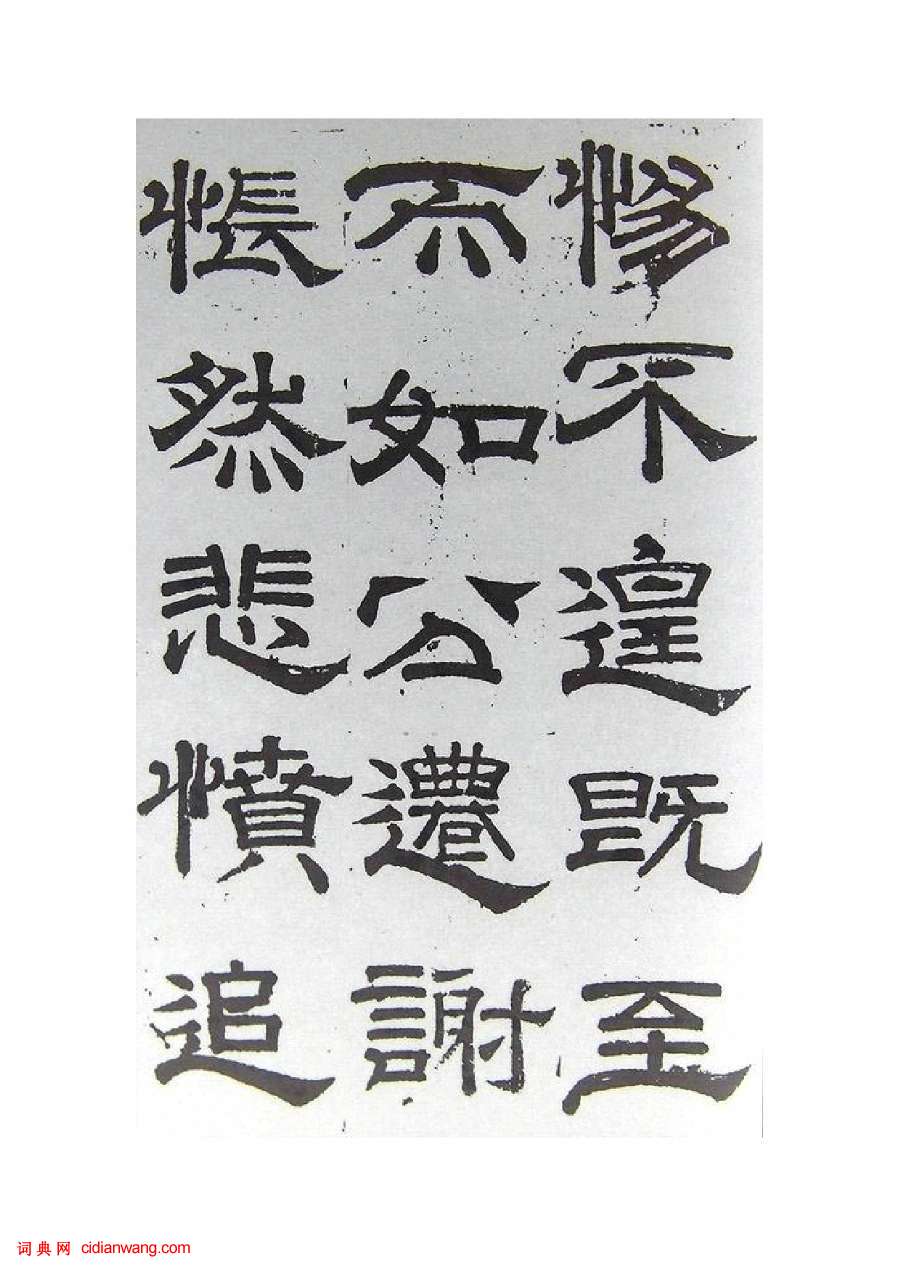 慘不遑既至
而如公遷謝
悵然悲憤追
词典网 cidianwang.com